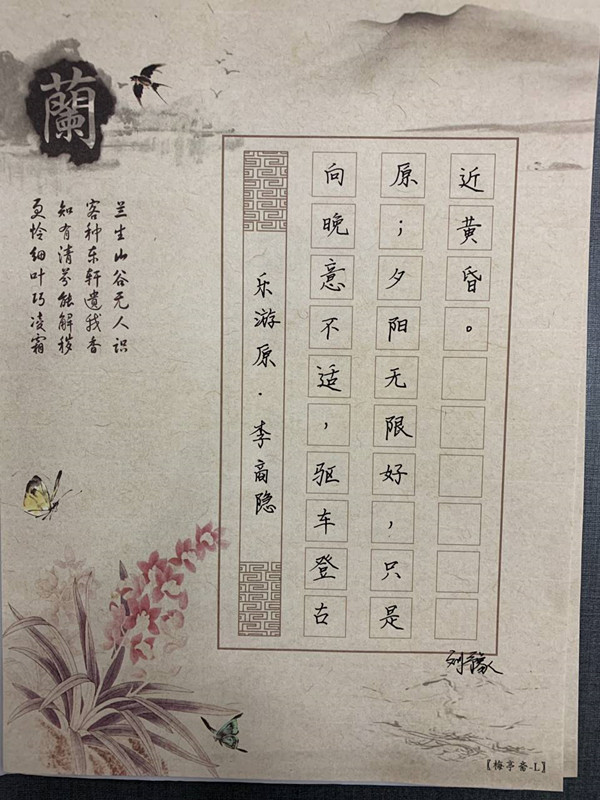 蘭
乐游原·李商隐
向晚意不适，驱车登古
原；夕阳无限好，只是
近黄昏。
兰生山谷无人识
客种东轩遗我香
知有清芬能解秽
更怜细叶巧凌霜
【梅亭斋-L】